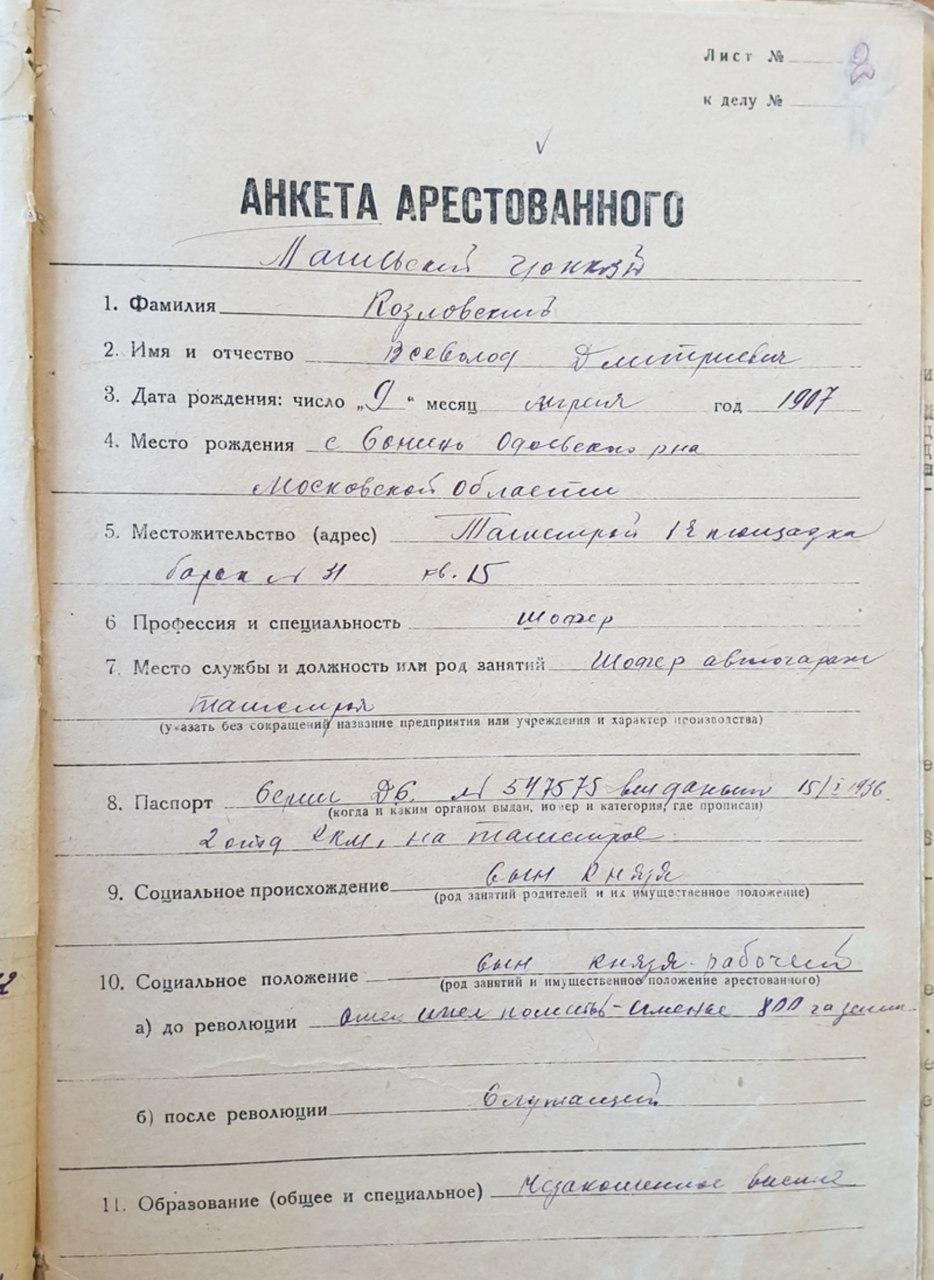 Лист № 2
к делу №
АНКЕТА АРЕСТОВАННОГО
1. Фамилия Козловский
2. Имя и отчество Всеволод Дмитриевич
3. Дата рождения: число „9“ месяц апреля год 1907
4. Место рождения с Сонино Одоевского рна
Московской области
5. Местожительство (адрес) Тагилстрой 1я площадка
барак № 31 кв. 15
6 Профессия и специальность шофер
7. Место службы и должность или род занятий Шофер автогараж
Тагилстроя
(указать без сокращений название предприятия или учреждения и характер производства)
8. Паспорт Серии ДБ. № 547575 выданый 15/I 1936
(когда и каким органом выдан, номер и категория, где прописан)
2 отд РКМ, на Тагилстрое
9. Социальное происхождение сын князя
(род занятий родителей и их имущественное положение)
10. Социальное положение сын князя - рабочий
(род занятий и имущественное положение арестованного)
а) до революции отец имел именье 800 га земли
б) после революции Служащий
11. Образование (общее и специальное) Незаконченное высшее